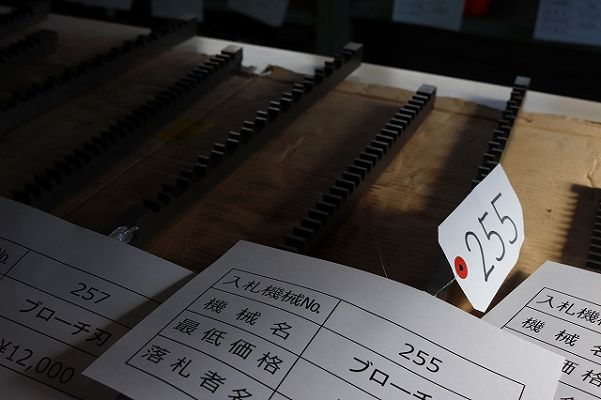 255
No.
257
ブローチ刃
¥12,000
入札機械No.
255
機械名
ブローチ
最低価格
落札者名
入札機
機械名
価格